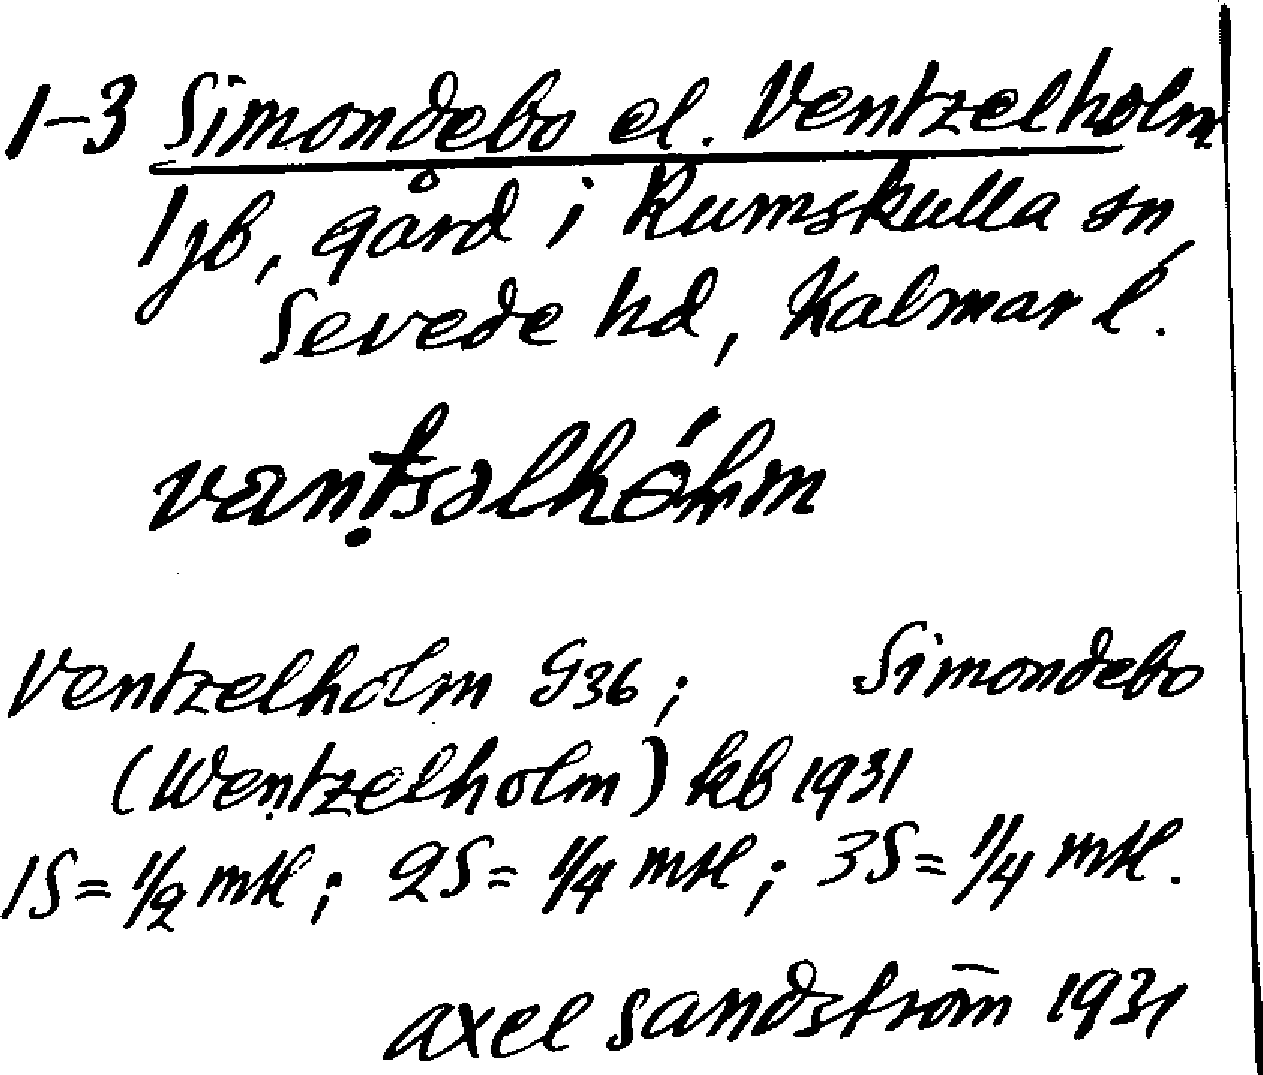 1-3 Simondebo el. Ventzelholm
1 jb, gård i Rumskulla sn,
Sevede hd, Kalmar l.
Ventzelholm G36; Simondebo
(Wentzelholm) kb 1931
1S = 1/2 mtl; 2S = 1/4 mtl; 3S = 1/4 mtl.
axel sandström 1931